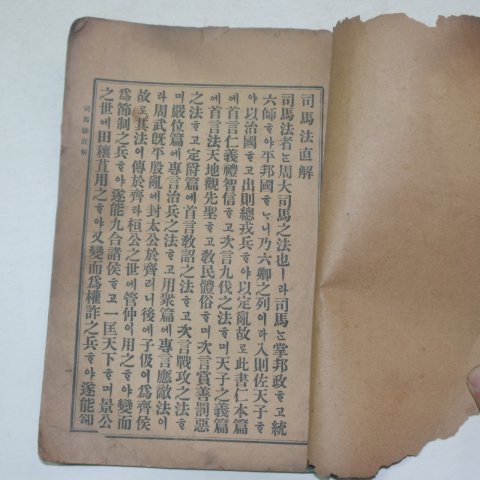 司馬法直解
司馬法者ᄂᆞᆫ周大司馬之法也ㅣ라司馬ᄂᆞᆫ掌邦政ᄒᆞ고統
六師ᄒᆞ야平邦國ᄒᆞᄂᆞ니乃六卿之列이라入則佐天子ᄒᆞ
야以治國ᄒᆞ고出則總戎兵ᄒᆞ야以定亂故로此書仁本篇
에首言仁義禮智信ᄒᆞ고次言九伐之法ᄒᆞ며天子之義篇
에首言法天地觀先聖ᄒᆞ고敎民體俗ᄒᆞ며次言賞善罰惡
之法ᄒᆞ고定爵篇에首言敎詔之法ᄒᆞ고次言戰攻之法ᄒᆞ
며嚴位篇에專言治兵之法ᄒᆞ고用衆篇에專言應敵法이
라周武旣平殷亂에封太公於齊러니後에子伋이爲齊侯
故로其法이傳於齊라桓公之世에管仲이用之ᄒᆞ야變而
爲節制之兵ᄒᆞ야遂能九合諸侯ᄒᆞ고一匡天下ᄒᆞ며景公
之世에田穰苴用之ᄒᆞ야又變而爲權詐之兵ᄒᆞ야遂能卻
司馬法直解